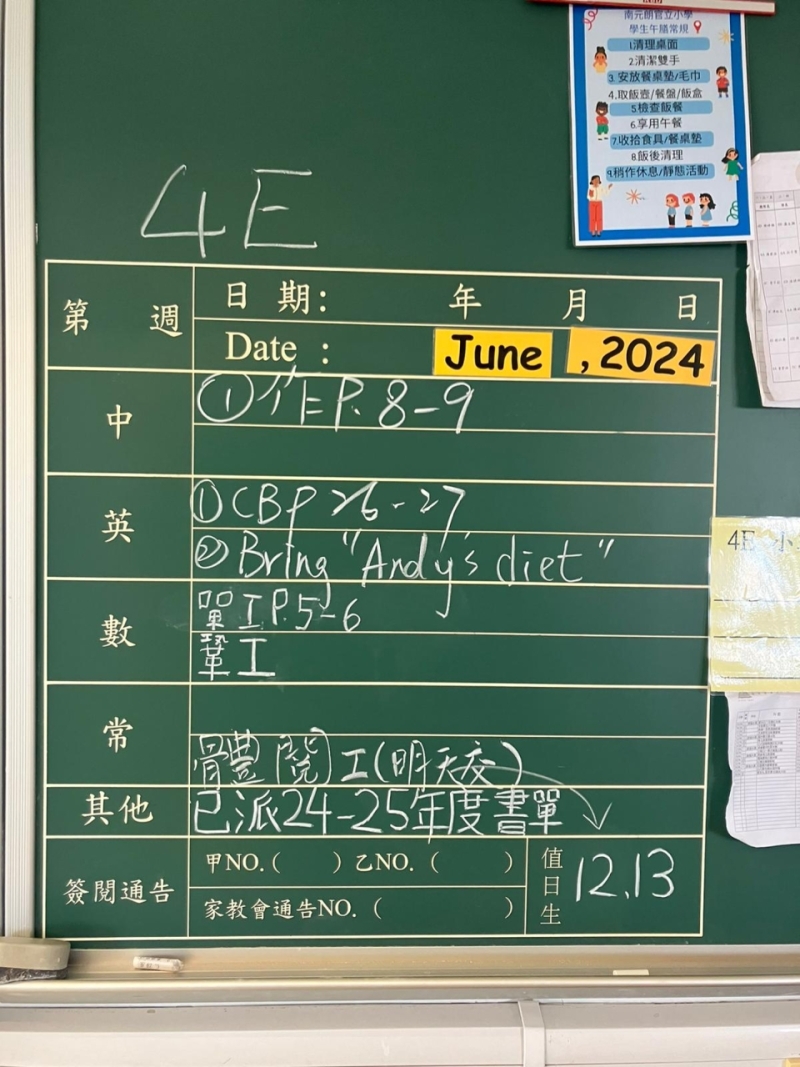 南元朗官立小學
學生午膳常規
1.清理桌面
2.清潔雙手
3.安放餐桌墊/毛巾
4.取飯壺/餐盤/飯盒
5檢查飯餐
6.享用午餐
7收拾食具/餐桌墊
8.飯後清理
9.稍作休息/靜態活動
4E
第 週
日 期： 年 月 日
Date : June , 2024
中
①作 P. 8-9
英
①CBP 26-27
②Bring "Andy's diet"
數
單工P.5-6
鞏工
常
體閱工(明天交)
其他
已派24-25年度書單
簽閱通告
甲NO.( ) 乙NO. ( )
家教會通告NO. ( )
值日生
12、13
4E 小